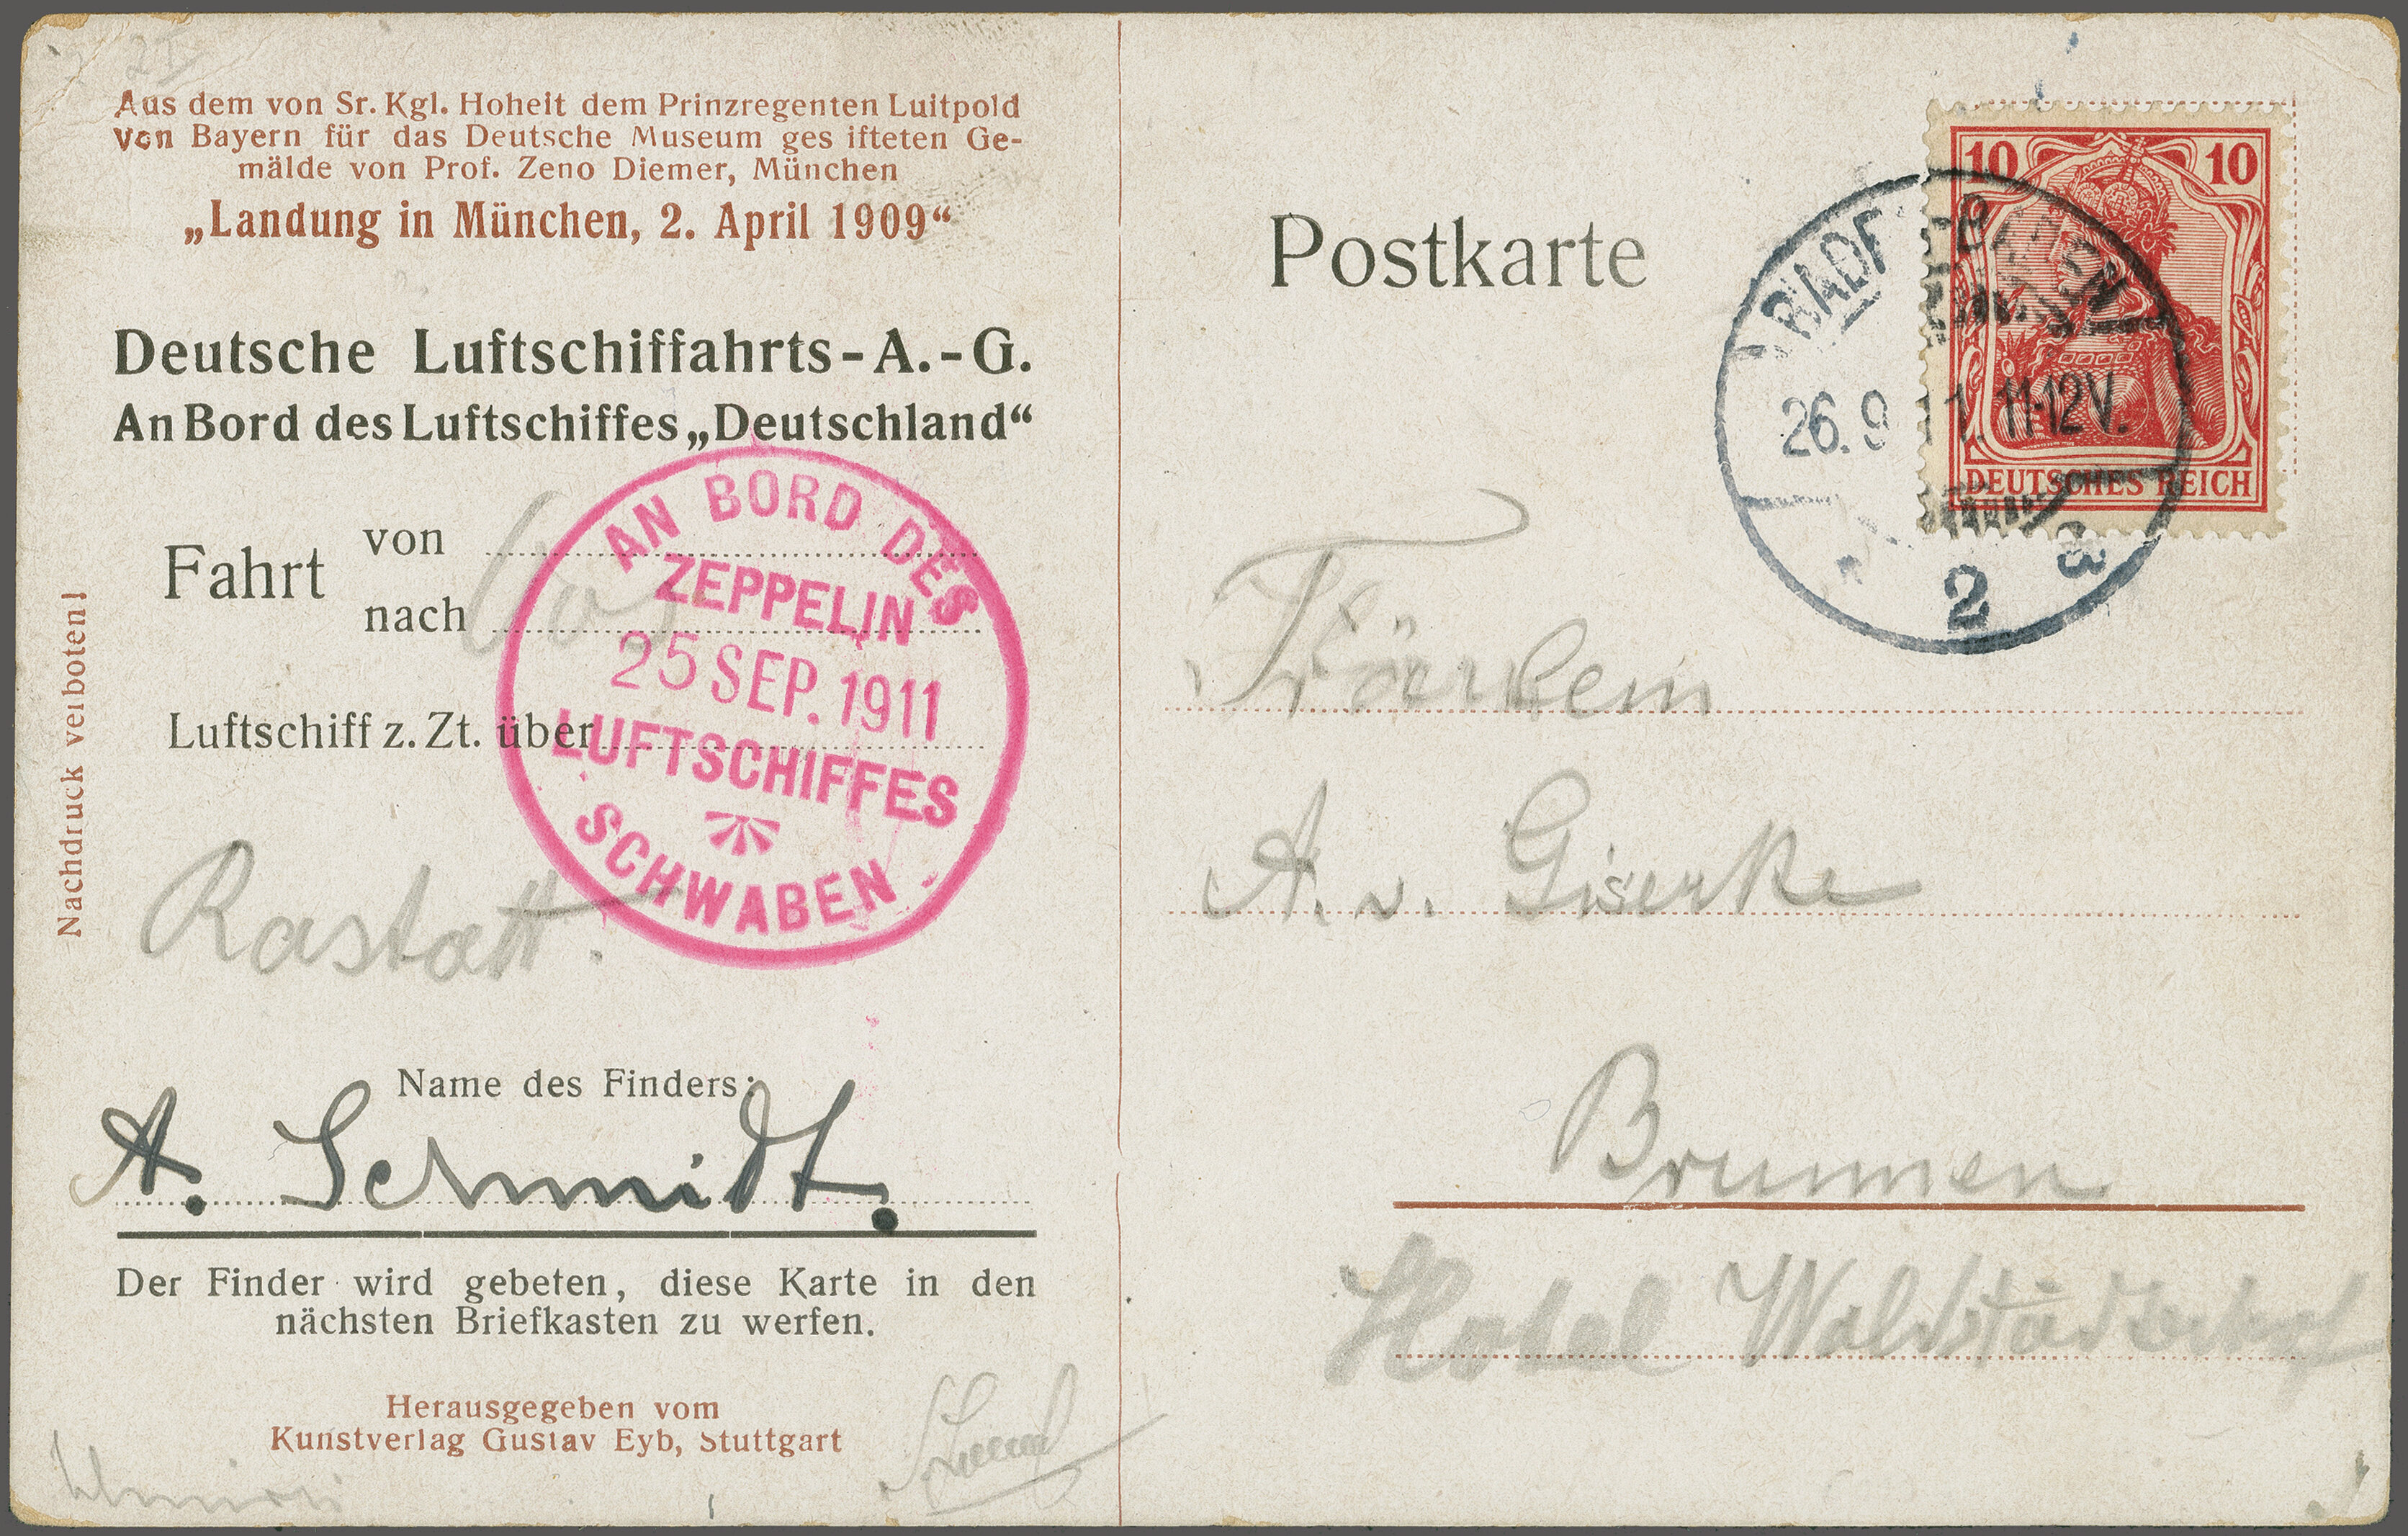 Aus dem von Sr. Kgl. Hoheit dem Prinzregenten Luitpold
von Bayern für das Deutsche Museum ges ifteten Ge-
mälde von Prof. Zeno Diemer, München
„Landung in München, 2. April 1909“
Deutsche Luftschiffahrts-A.-G.
An Bord des Luftschiffes „Deutschland“
Fahrt von
nach
Luftschiff z. Zt. über
AN BORD DES
ZEPPELIN
25 SEP. 1911
LUFTSCHIFFES
SCHWABEN
Rastatt.
Nachdruck verboten!
Name des Finders:
A. Schmidt.
Der Finder wird gebeten, diese Karte in den
nächsten Briefkasten zu werfen.
Herausgegeben vom
Kunstverlag Gustav Eyb, Stuttgart
Postkarte
10 10
DEUTSCHES REICH
26.9 1. 11-12V.
2 a
A. v. Giserke
Brunnen
Hotel Waldstädterhof